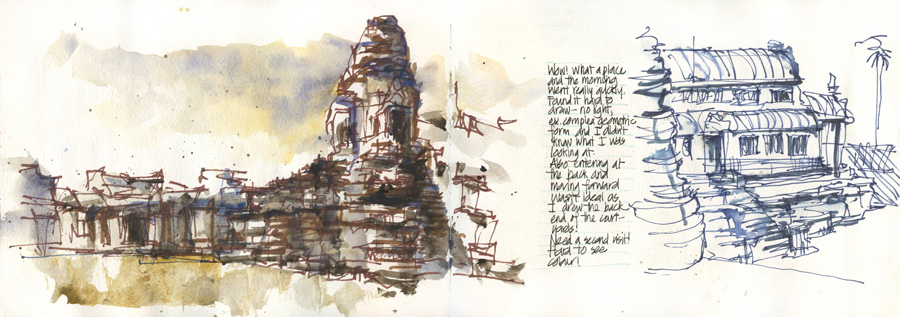 Wow! What a place
and the morning
went really quickly.
Found it hard to
draw - no light,
ex. complex geometric
form and I didn't
know what I was
looking at.
Also entering at
the back and
moving forward
wasn't ideal as
I drew the back
end of the court-
yards!
Need a second visit!
Hard to see
colour!